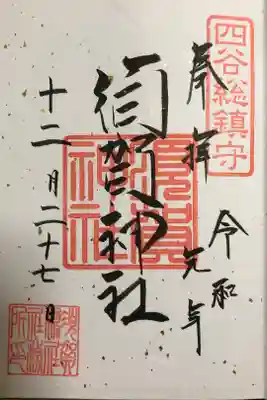 四谷総鎮守
奉拝
令和元年
須賀神社
須賀神社
十二月二十七日